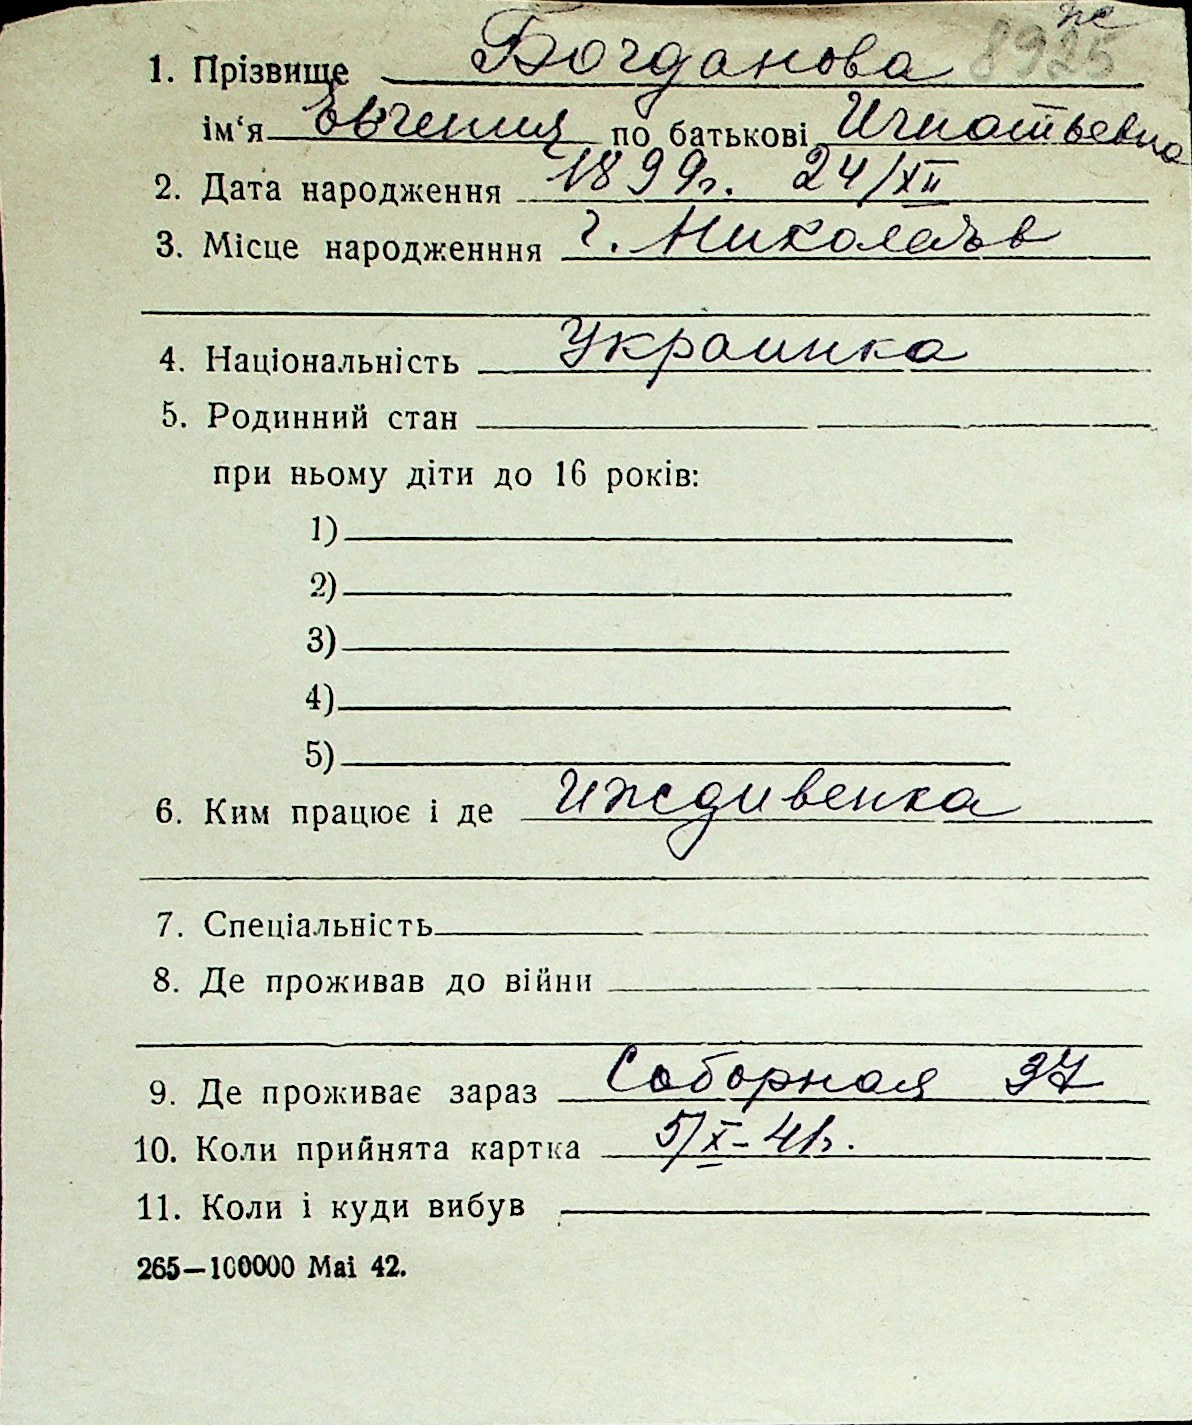 же
8925
1. Прізвище Богданова
ім‘я Евгения по батькові Игнатьевна
2. Дата народження 1899г. 24/XII
3. Місце народженння г. Николаев
4. Національність Украинка
5. Родинний стан
при ньому діти до 16 років:
1)
2)
3)
4)
5)
6. Ким працює і де иждивенка
7. Спеціальність
8. Де проживав до війни
9. Де проживає зараз Соборная 37
10. Коли прийнята картка 5/X-41г.
11. Коли і куди вибув
265—100000 Mai 42.